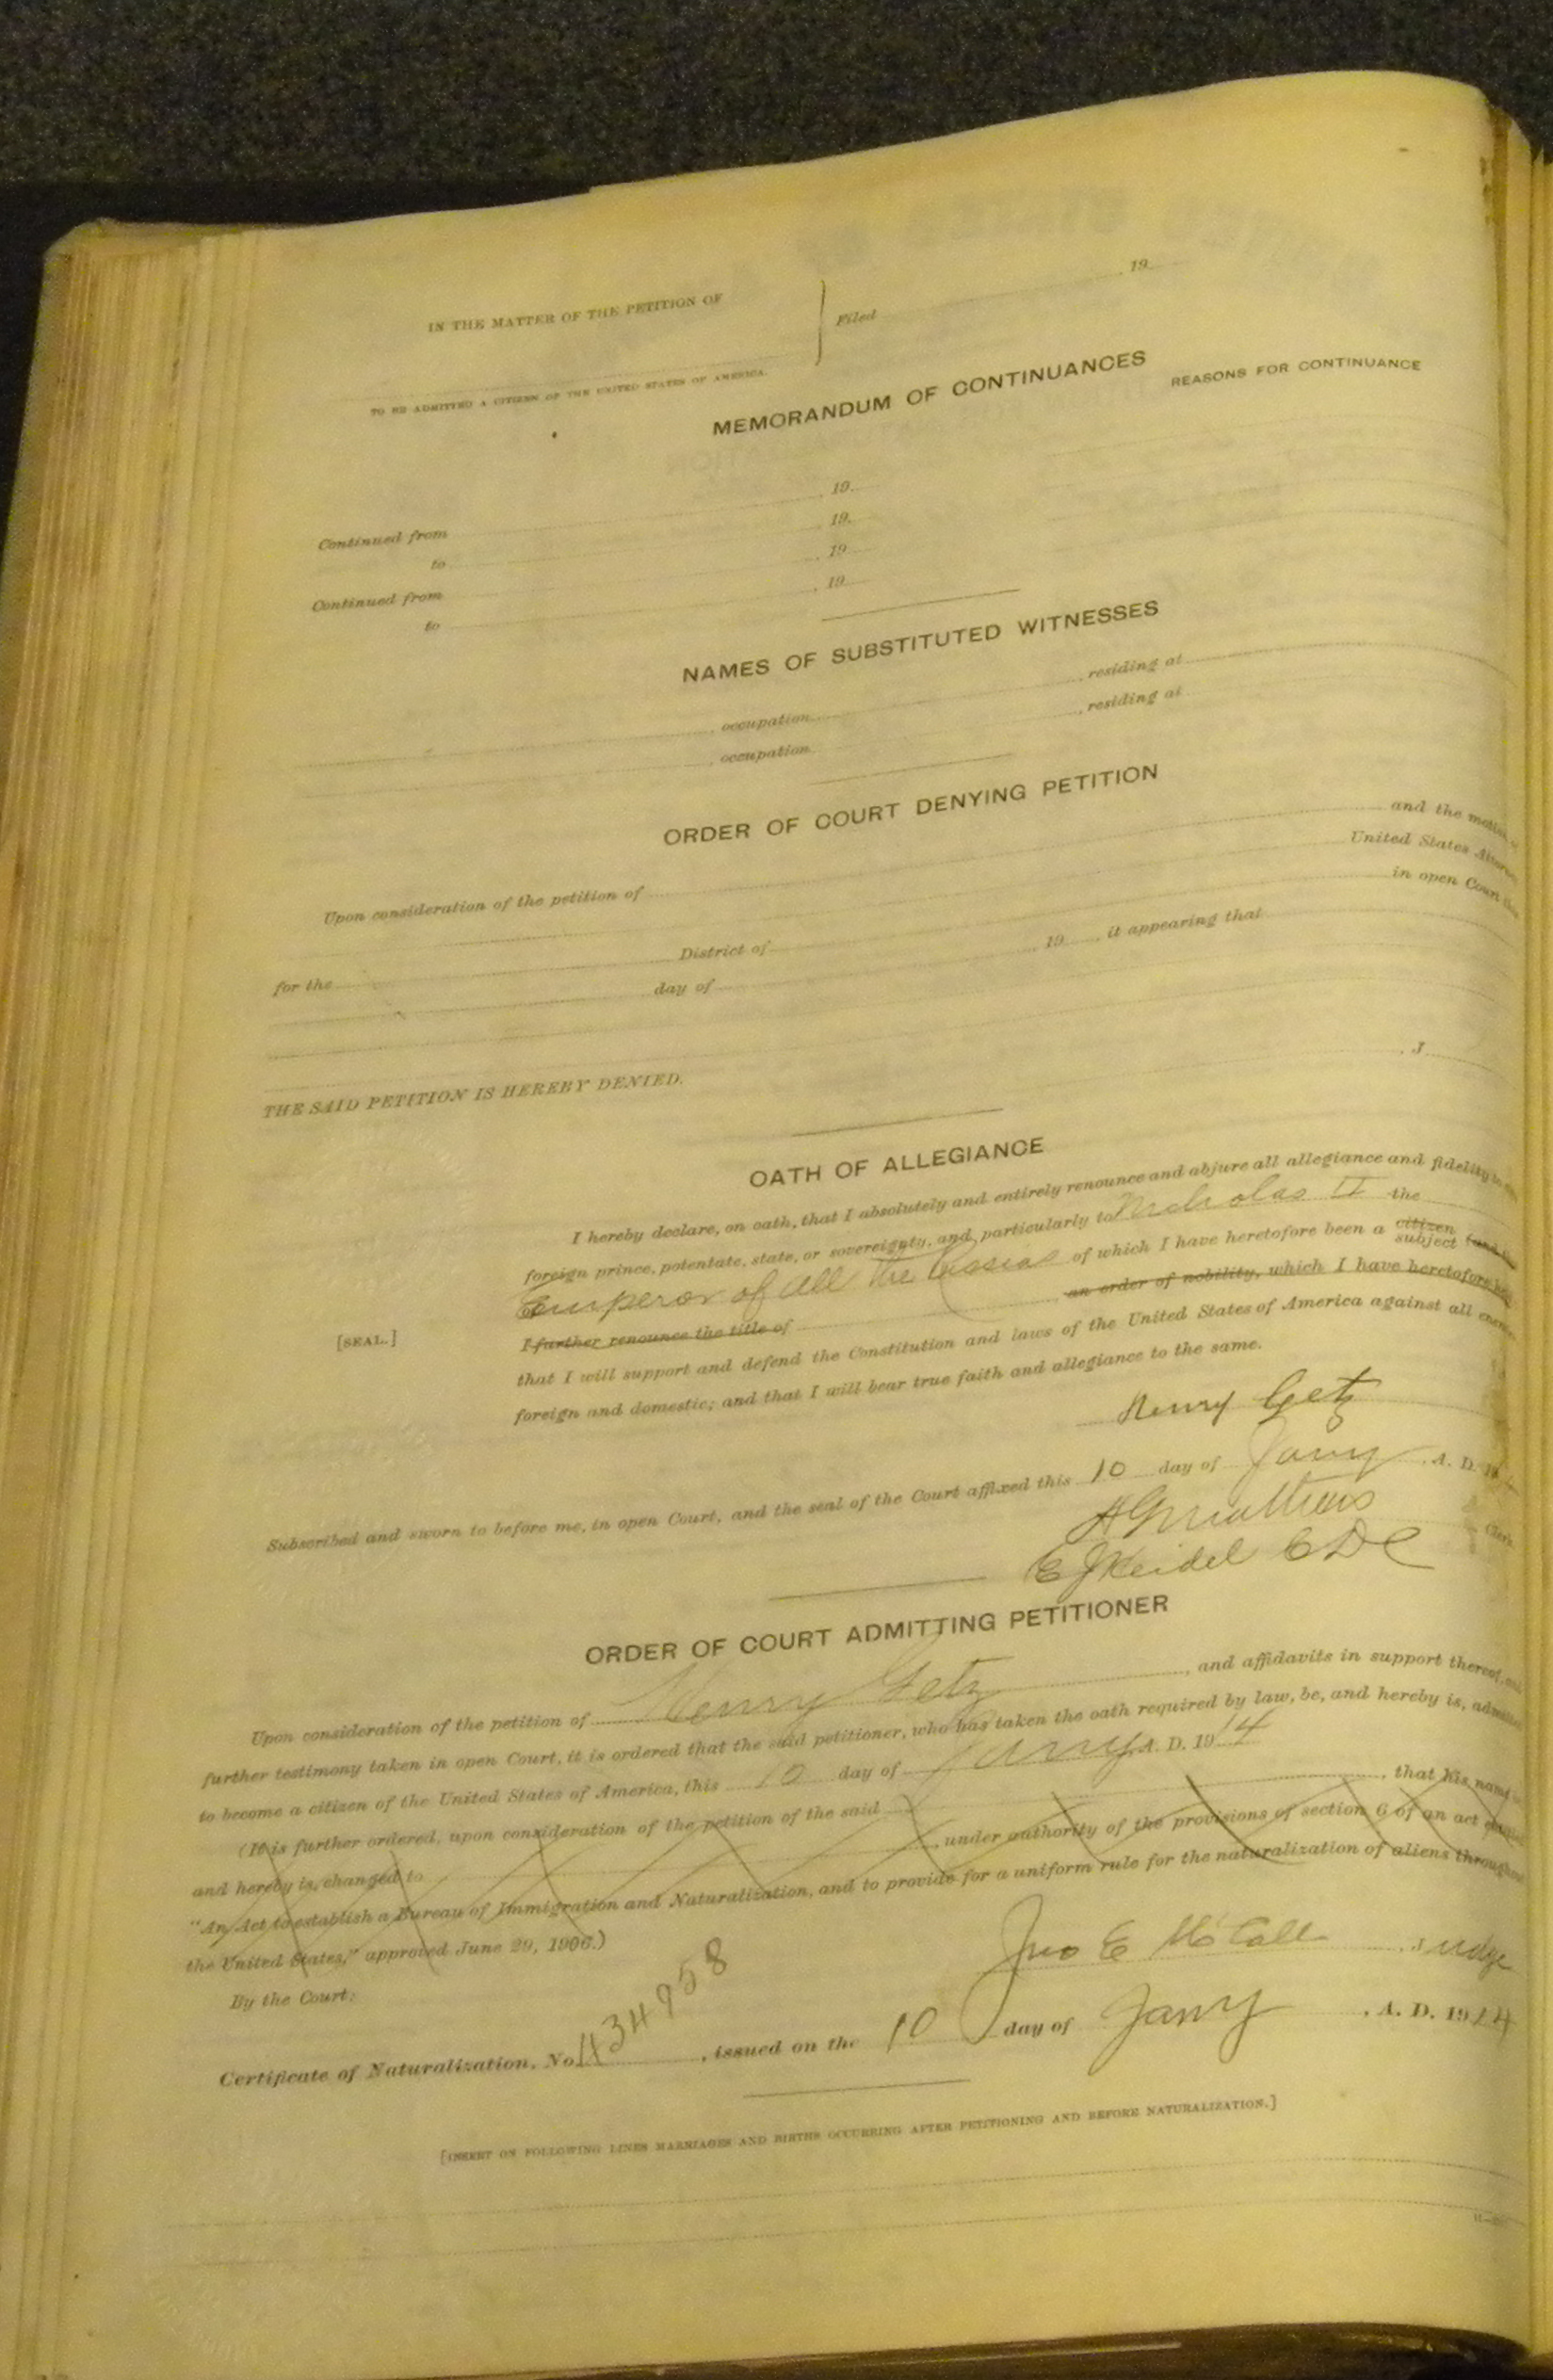 IN THE MATTER OF THE PETITION OF
Filed , 19
TO BE ADMITTED A CITIZEN OF THE UNITED STATES OF AMERICA.
MEMORANDUM OF CONTINUANCES
REASONS FOR CONTINUANCE
Continued from , 19
to , 19
Continued from , 19
to , 19
NAMES OF SUBSTITUTED WITNESSES
, occupation , residing at
, occupation , residing at
ORDER OF COURT DENYING PETITION
Upon consideration of the petition of and the motion of
United States
for the District of in open Court this
day of , 19 , it appearing that
THE SAID PETITION IS HEREBY DENIED.
, J
OATH OF ALLEGIANCE
I hereby declare, on oath, that I absolutely and entirely renounce and abjure all allegiance and fidelity to
foreign prince, potentate, state, or sovereignty, and particularly to Nicholas II the
Emperor of all the Russias of which I have heretofore been a citizen subject (and
I further renounce the title of an order of nobility, which I have heretofore
that I will support and defend the Constitution and laws of the United States of America against all
foreign and domestic; and that I will bear true faith and allegiance to the same.
[SEAL.]
Henry Getz
Subscribed and sworn to before me, in open Court, and the seal of the Court affixed this 10 day of Jany , A. D. 19
Clerk
ORDER OF COURT ADMITTING PETITIONER
Upon consideration of the petition of Henry Getz , and affidavits in support thereof,
further testimony taken in open Court, it is ordered that the said petitioner, who has taken the oath required by law, be, and hereby is,
to become a citizen of the United States of America, this 10 day of Jany A. D. 1914
(It is further ordered, upon consideration of the petition of the said , that his name
and hereby is, changed to , under authority of the provisions of section 6 of an act
"An Act to establish a Bureau of Immigration and Naturalization, and to provide for a uniform rule for the naturalization of aliens throughout
the United States," approved June 29, 1906.)
By the Court:
Jno E McCall , Judge
Certificate of Naturalization, No. 434958 , issued on the 10 day of Jany , A. D. 1914
[INSERT ON FOLLOWING LINES MARRIAGES AND BIRTHS OCCURRING AFTER PETITIONING AND BEFORE NATURALIZATION.]